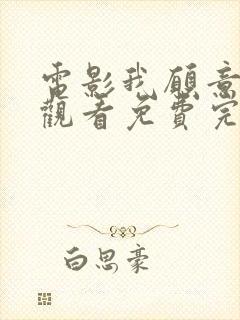 電影我願意
觀看免費完
白思豪